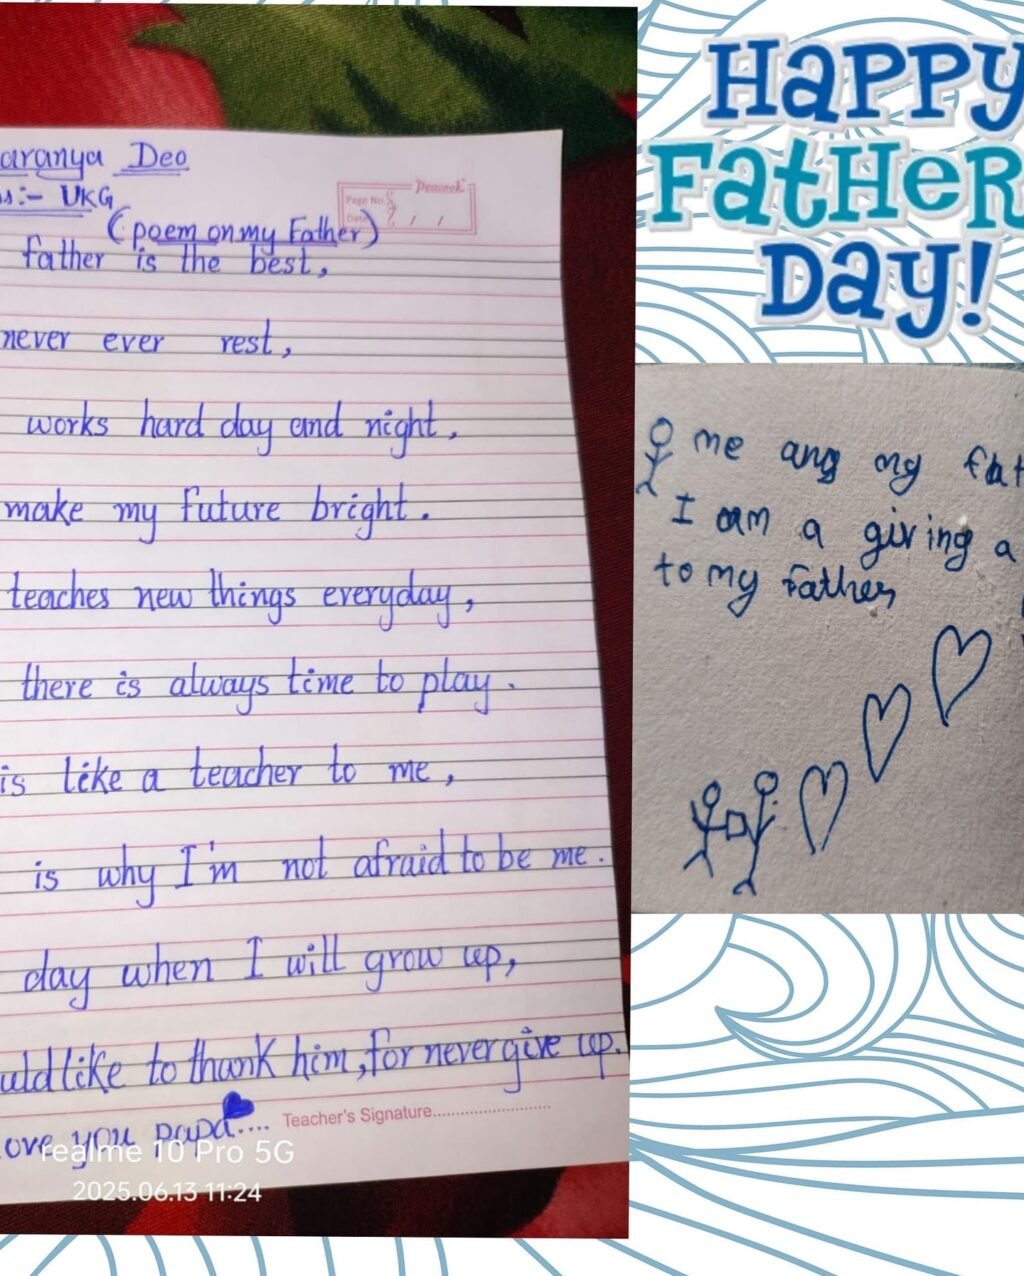 aranya Deo
ss:- UKG
Peacock
Page No.
Date
(poem on my Father)
father is the best,
never ever rest,
works hard day and night,
make my future bright.
teaches new things everyday,
there is always time to play.
is like a teacher to me,
is why I'm not afraid to be me.
day when I will grow up,
uld like to thank him, for never give up.
ove you papa....
Teacher's Signature
realme 10 Pro 5G
2025.06.13 11:24
HAPPY
FATHER
DAY!
me ang my fat
I am a giving a
to my father